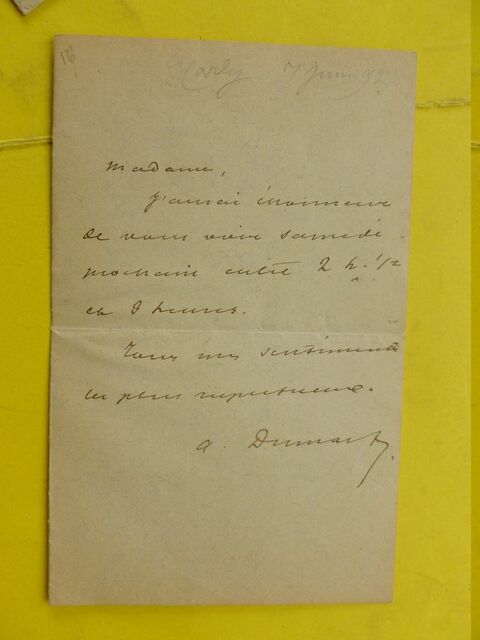 16
Marly 7 juin 92
Madame,
J'aurai l'honneur
de vous voir samedi
prochain entre 2 h. 1/2
et 3 heures.
Tous mes sentiments
les plus respectueux.
A. Dumas f.